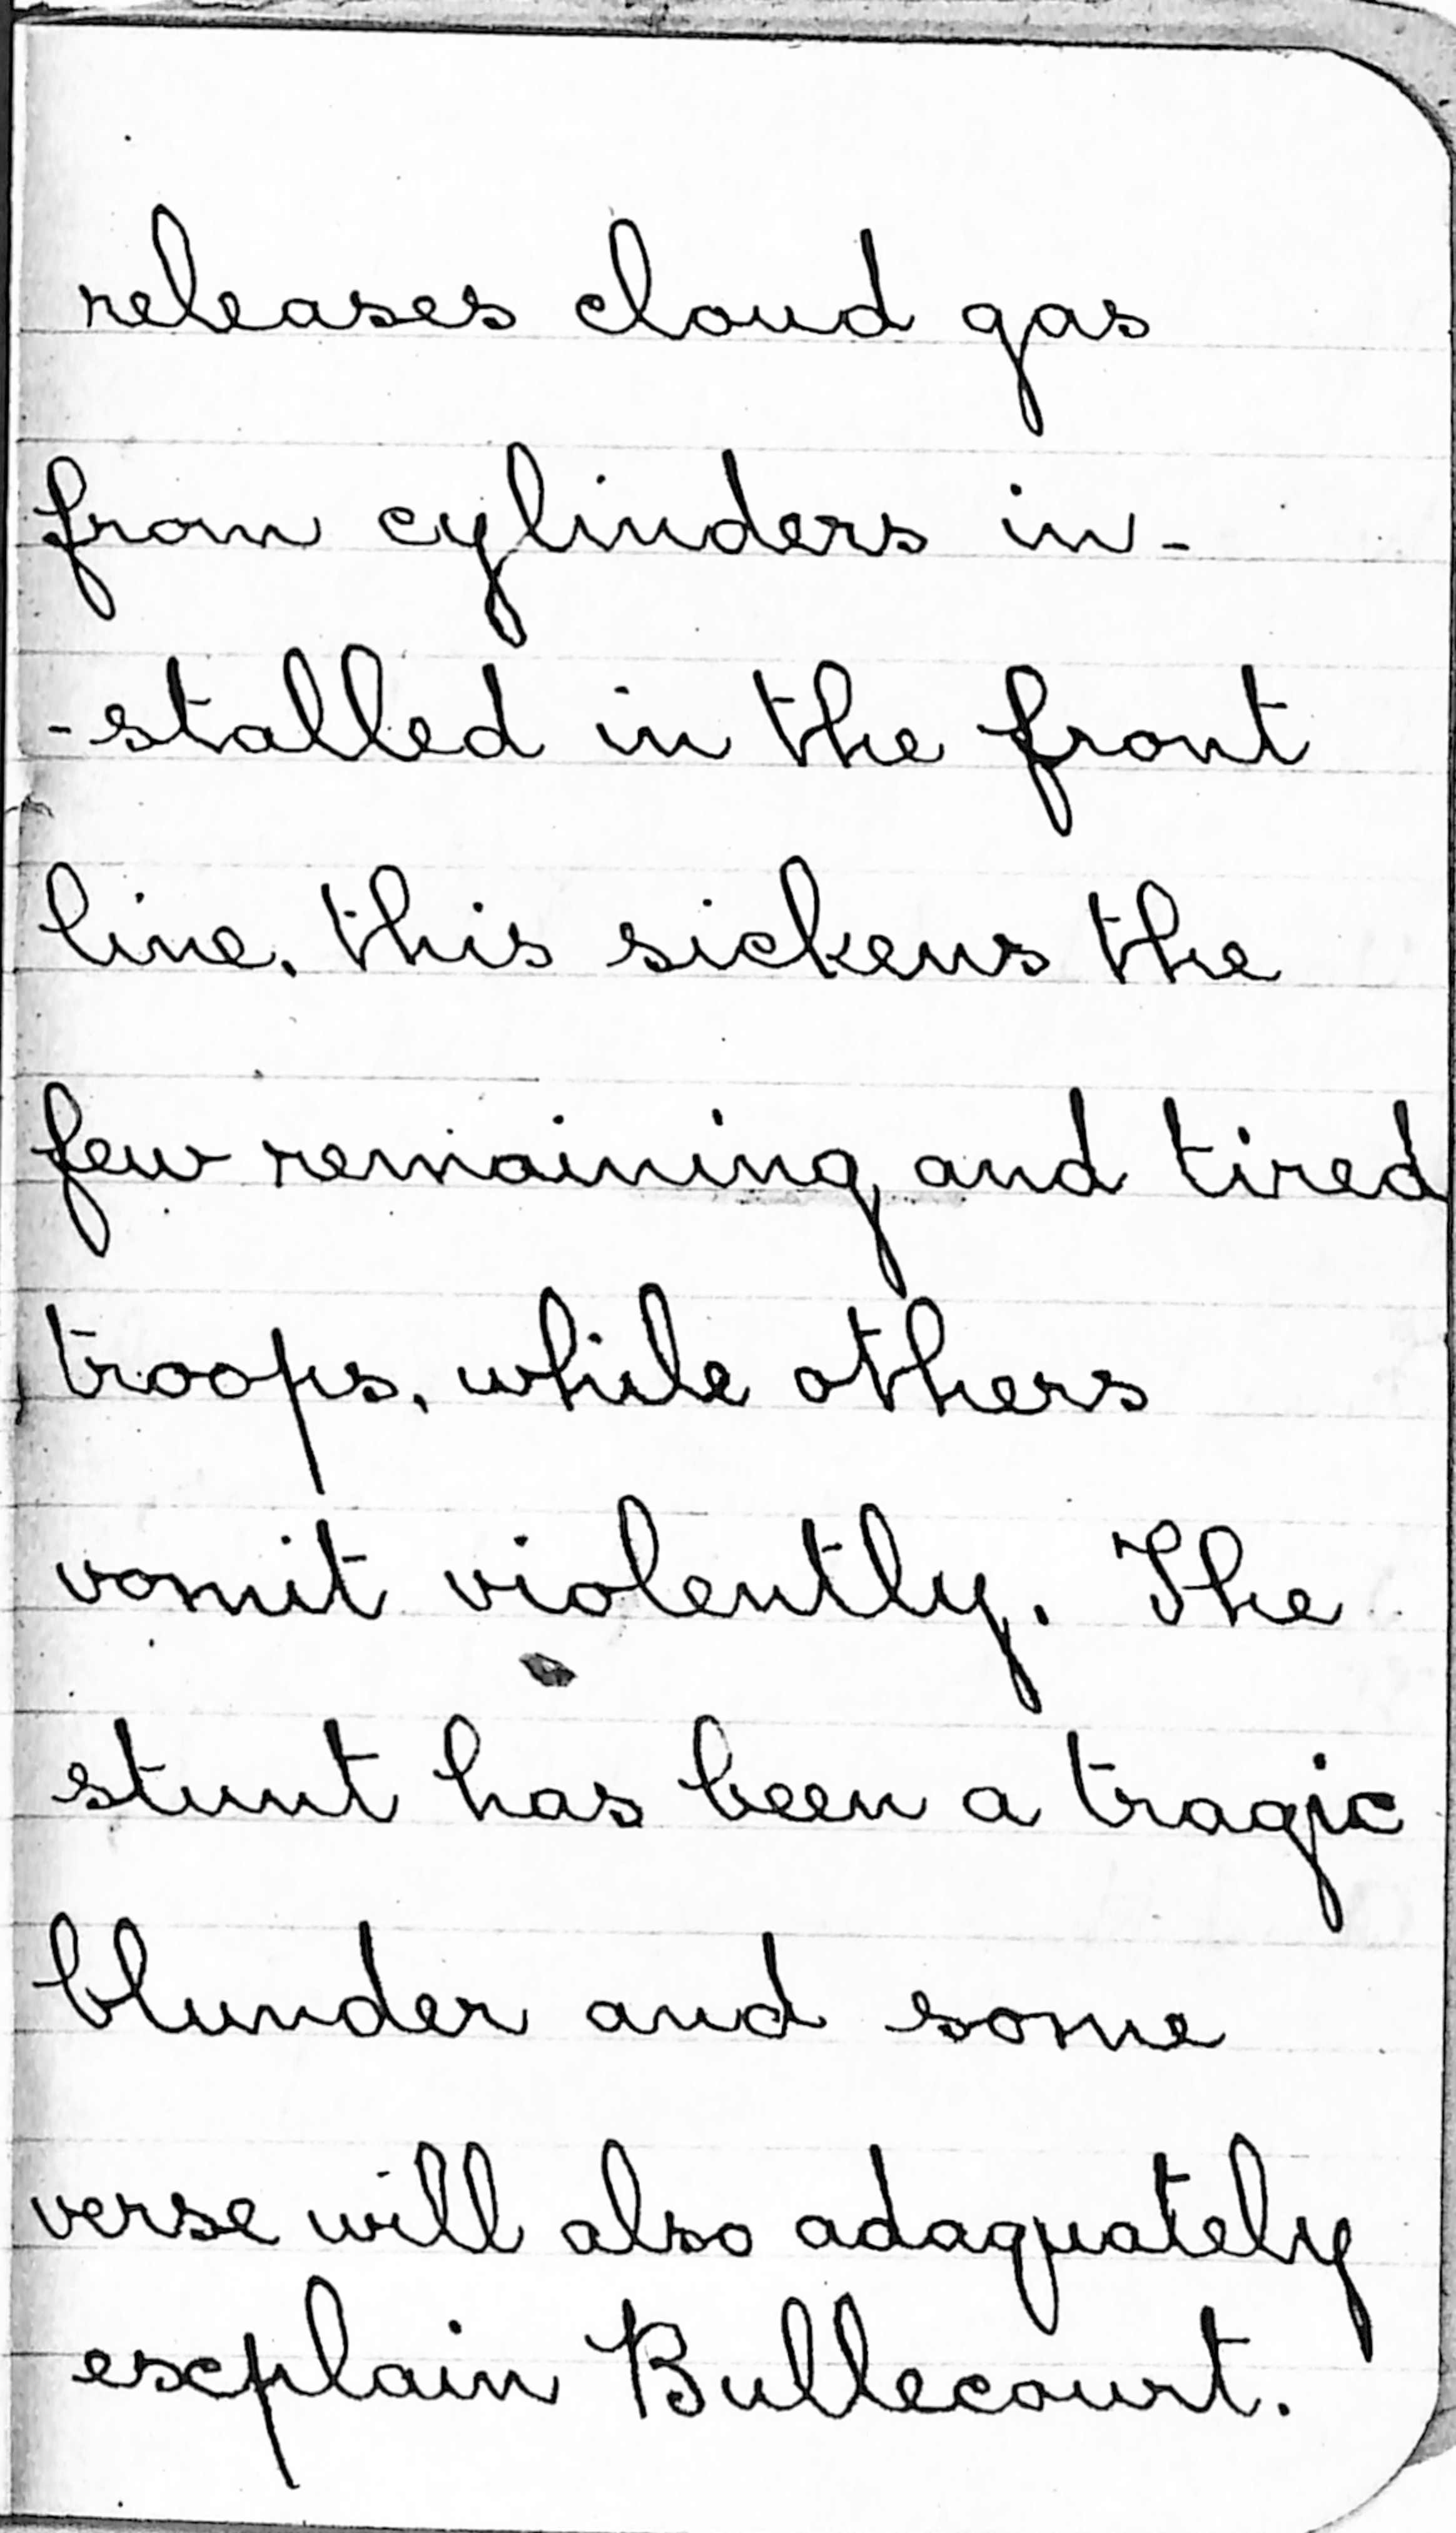 releases cloud gas
from cylinders in-
-stalled in the front
line, this sickens the
few remaining and tired
troops, while others
vomit violently. The
stunt has been a tragic
blunder and some
verse will also adaquately
explain Bullecourt.